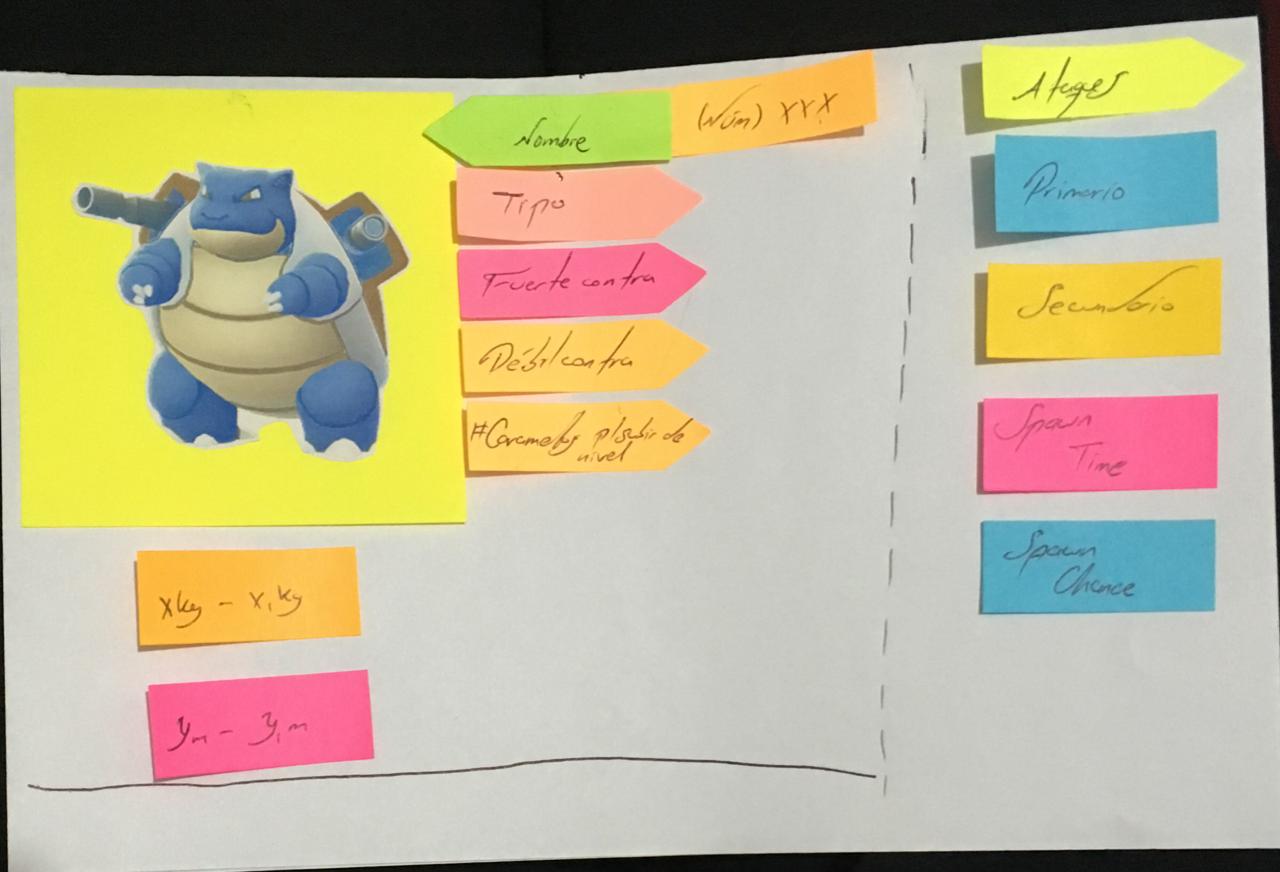 Nombre
(Núm) XXX
Tipo
Fuerte contra
Débil contra
#Caramelos p/subir de
nivel
xkg - x,kg
ym - y,m
Ataques
Primario
Secundario
Spawn
Time
Spawn
Chance